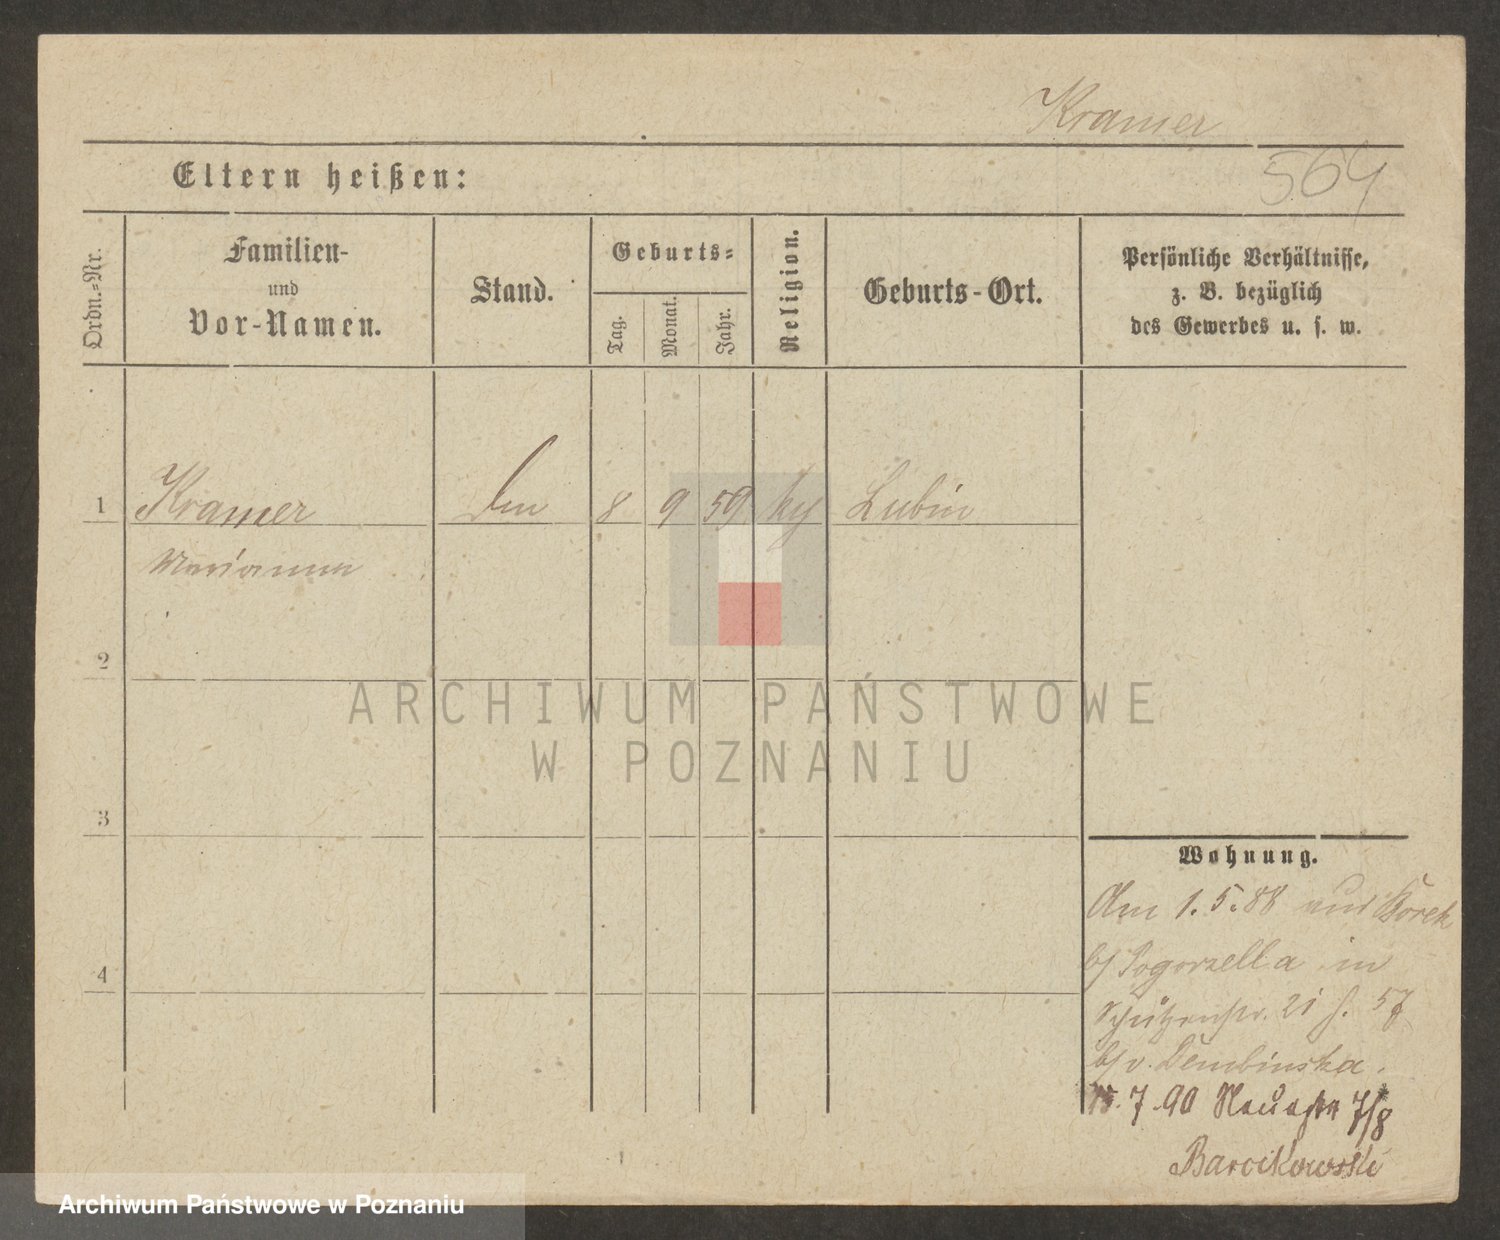 Kramer
564
Eltern heißen:
Ordn.-Nr.
Familien-
und
Vor-Namen.
Stand.
Geburts-
Tag.
Monat.
Jahr.
Religion.
Geburts-Ort.
Persönliche Verhältnisse,
z. B. bezüglich
des Gewerbes u. s. w.
1 Kramer 8 9 59 Lubin
Marianna
2
3
4
ARCHIWUM PAŃSTWOWE
W POZNANIU
Wohnung.
Am 1.5.88 aus Borek
b/ Pogorzella in
Schützenstr. 21
b/ v. Dembinska.
15.7.90 Neuestr 7/8
Barcikowski
Archiwum Państwowe w Poznaniu